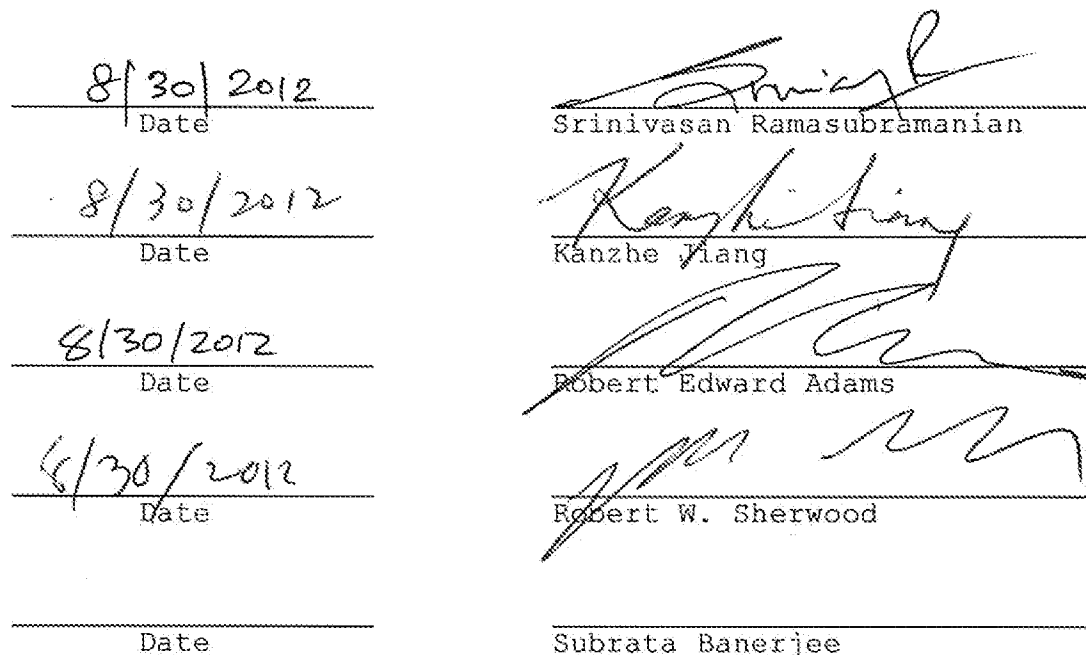 8/30/2012
Date Srinivasan Ramasubramanian
8/30/2012 Kanzhe Jiang
Date Kanzhe Jiang
8/30/2012
Date Robert Edward Adams
8/30/2012
Date Robert W. Sherwood
Date Subrata Banerjee